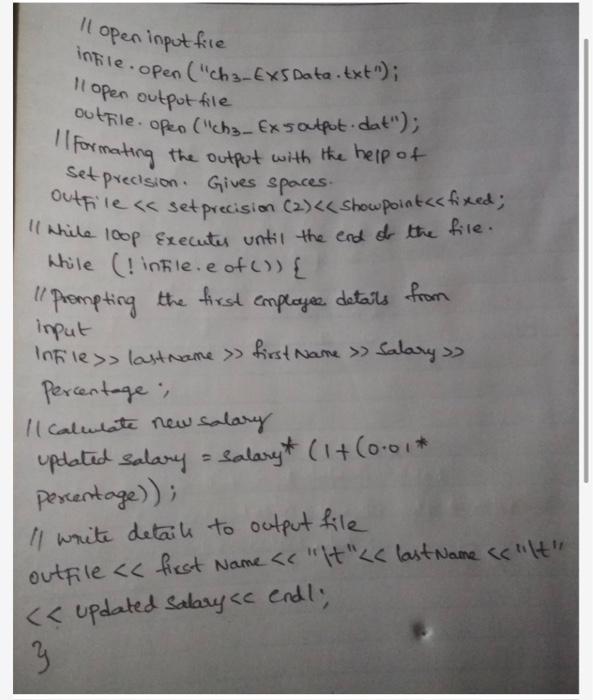 // open input file
inFile.open ("ch3_Ex5Data.txt");
// open output file
outFile.open ("ch3_Ex5output.dat");
// Formating the output with the help of
setprecision. Gives spaces.
outFile << setprecision (2) << showpoint << fixed;
// While loop Executes until the end of the file.
While (! inFile.eof()) {
// Prompting the first employee details from
input
InFile >> lastName >> firstName >> Salary >>
Percentage ;
// Calculate new salary
updated salary = salary* (1+(0.01*
percentage));
// write details to output file
outFile << first Name << "\t" << lastName << "\t"
<< updated Salary << endl;
}